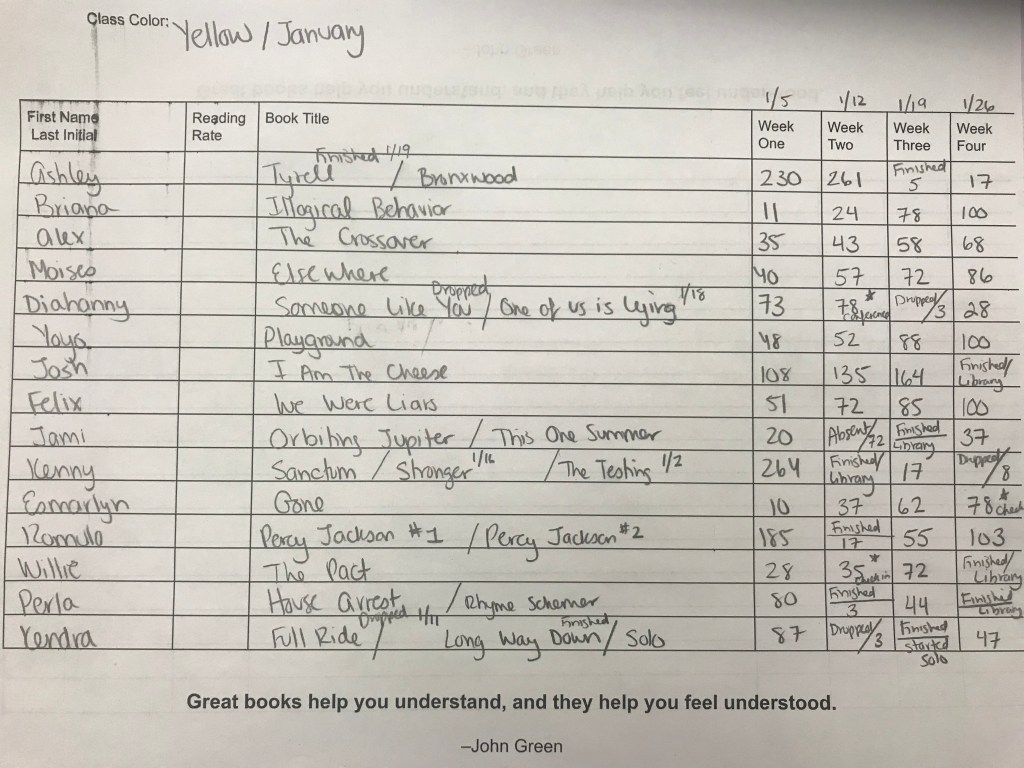 Class Color: Yellow / January
1/5 1/12 1/19 1/26
First Name Last Initial Reading Rate Book Title Week One Week Two Week Three Week Four
Finished 1/19
Ashley Tyrell / Bronxwood 230 261 Finished 5 17
Briana Illogical Behavior 11 24 78 100
Alex The Crossover 35 43 58 68
Moises Elsewhere 40 57 72 86
Dropped 1/18
Diahanny Someone Like You / One of us is lying 73 78 * conference Dropped/3 28
Playground 48 52 88 100
Josh I Am The Cheese 108 135 164 Finished/ Library
Felix We Were Liars 51 72 85 100
Jami Orbiting Jupiter / This One Summer 20 Absent/72 Finished Library 37
Kenny Sanctum / Stronger 1/16 / The Testing 1/2 264 Finished/ Library 17 Dropped/8
Esmarlyn Gone 10 37 62 78 * check
Romulo Percy Jackson #1 / Percy Jackson #2 185 Finished 17 55 103
Willie The Pact 28 35 * check in 72 Finished/ Library
Perla House Arrest / Rhyme Schemer 80 Finished 3 44 Finished Library
Dropped 1/11 Finished
Kendra Full Ride / Long Way Down / Solo 87 Dropped/3 Finished started Solo 47
Great books help you understand, and they help you feel understood.
–John Green